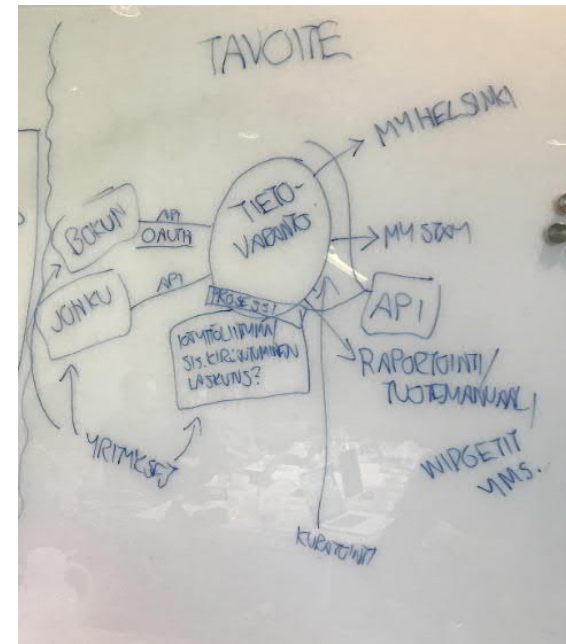 TAVOITE
MYHELSINKI
TIETO-
VARANTO
BOKUN
API
OAUTH
JOHKU
API
PROSESSI
API
KÄYTTÖLIITTYMÄ/
SIS.KIRJAUTUMINEN
LASKUTUS?
RAPORTOINTI/
TUOTEMANUAALI
WIDGETIT
YMS.
YRITYKSET
KURATOINTI